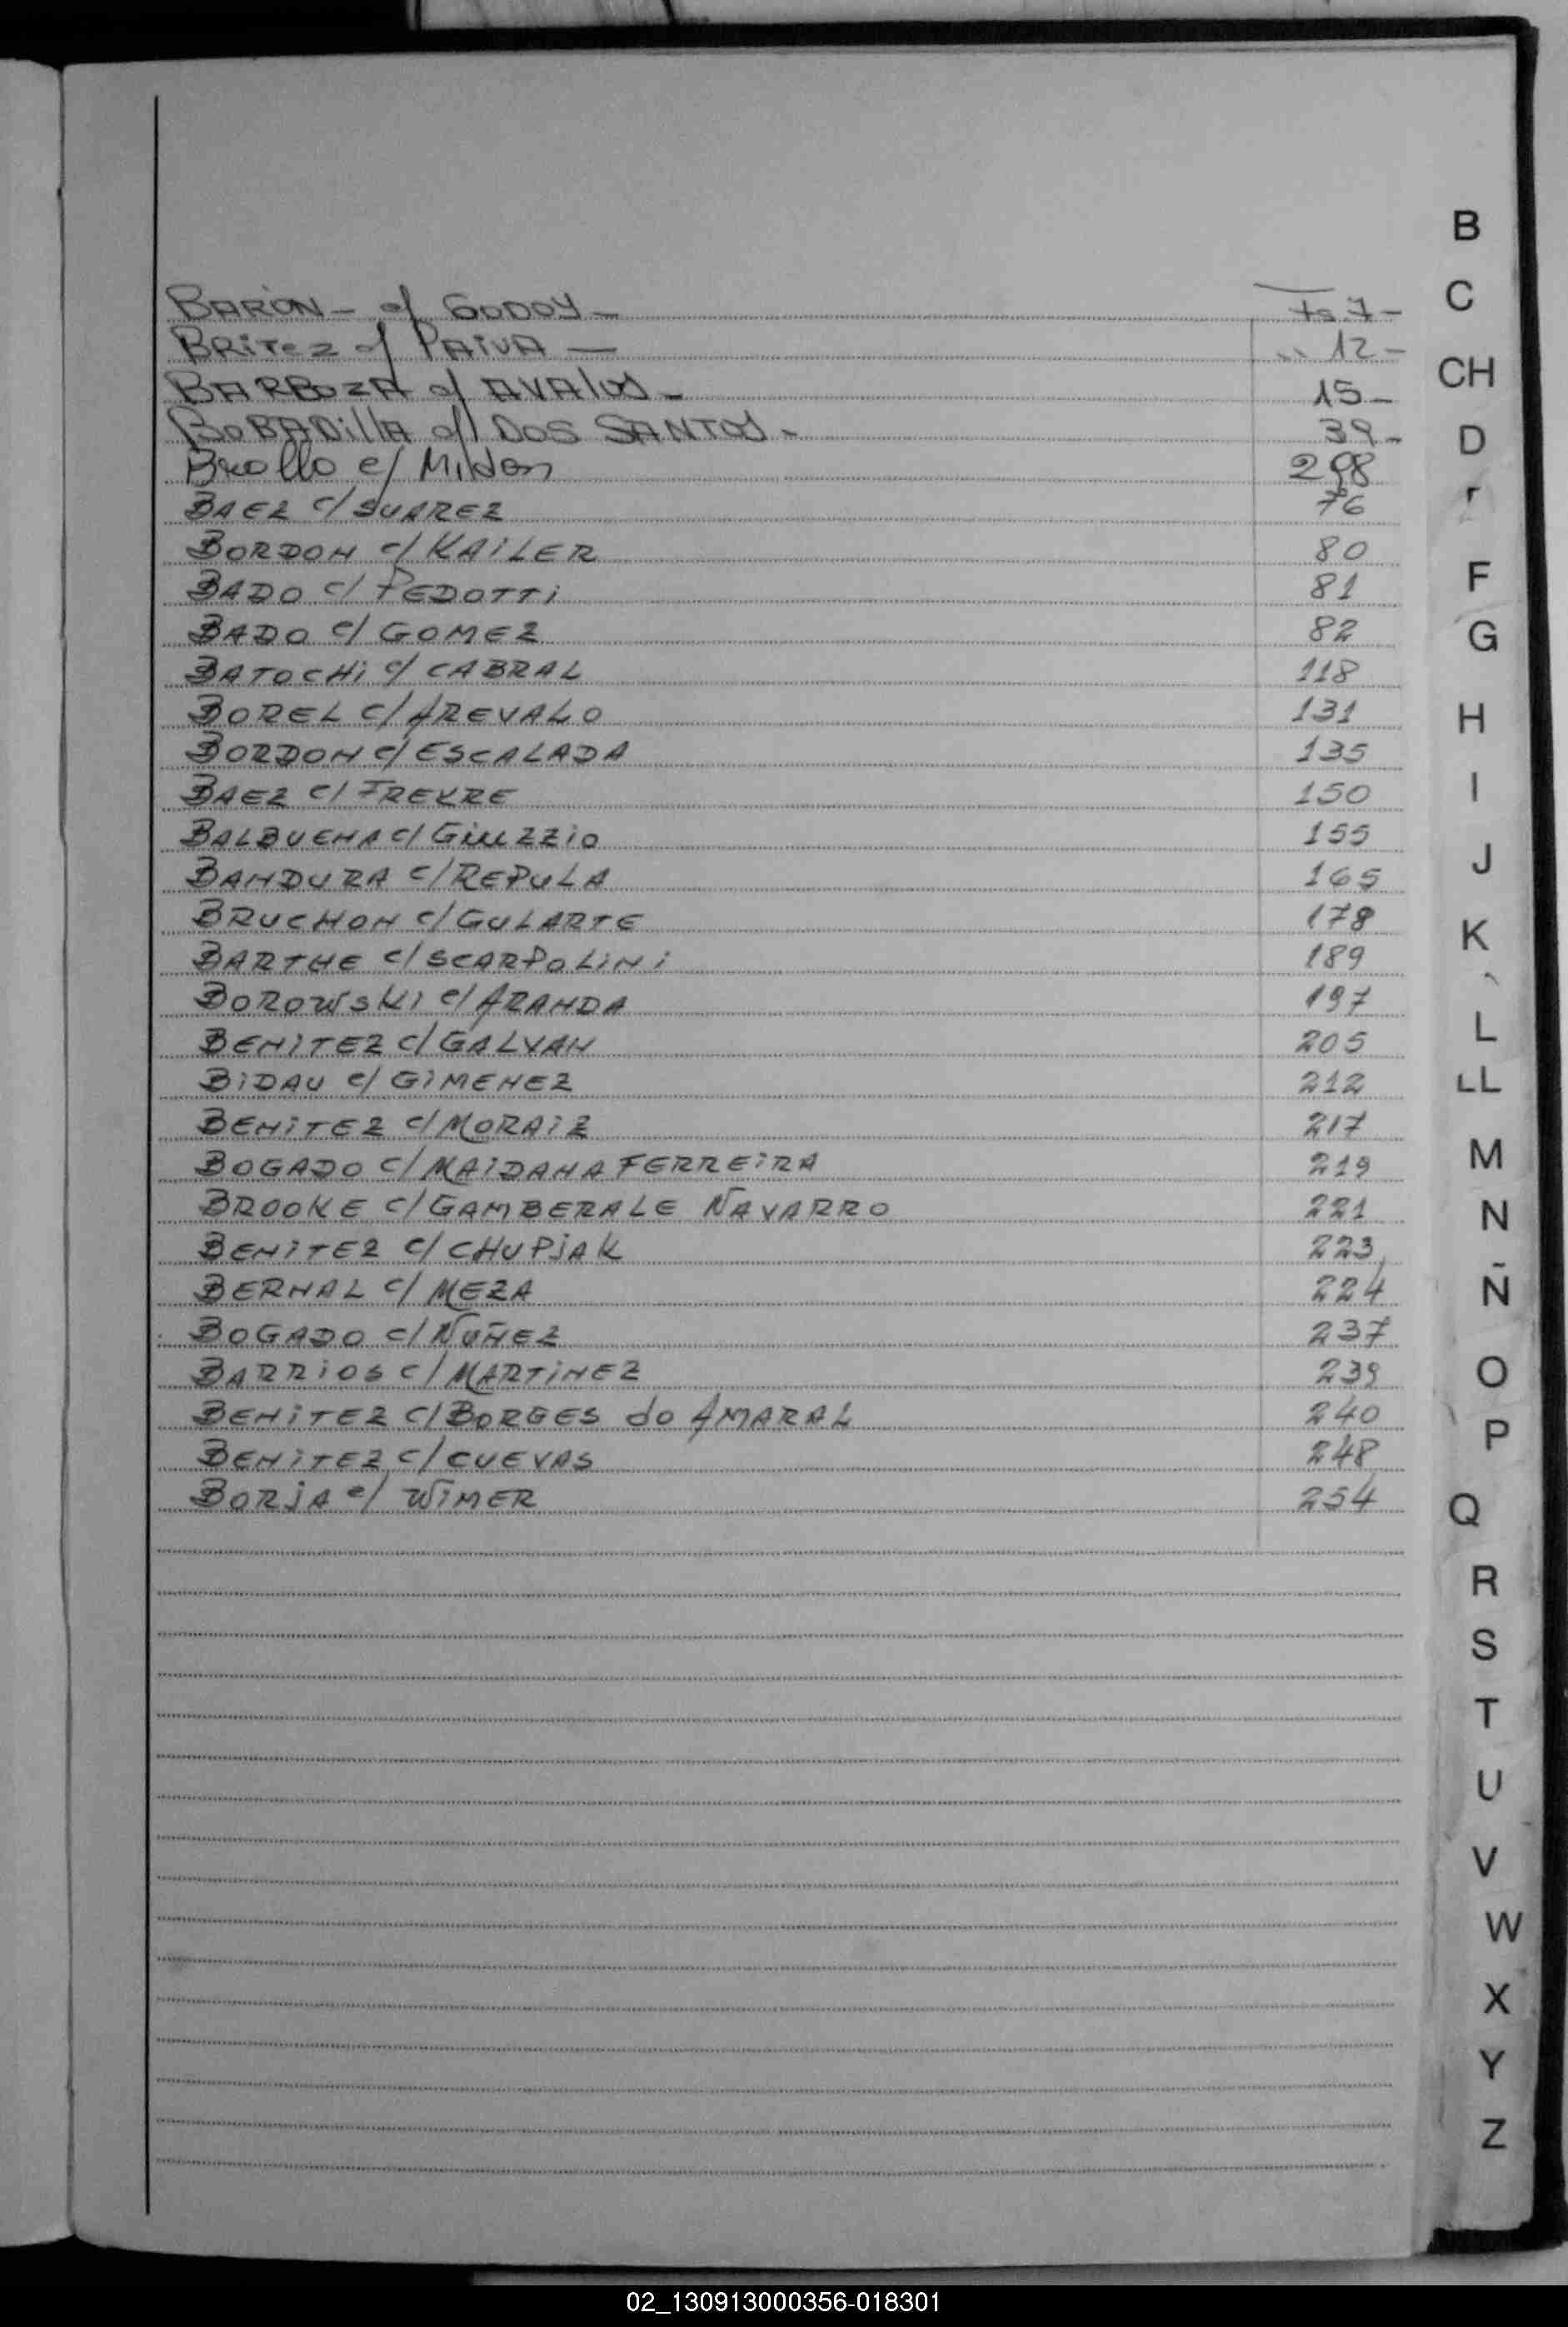 BARON - c/ GODOY - Fs 7 -
BRITEZ c/ PAIVA - " 12 -
BARBOZA c/ AVALOS - 15 -
BOBADILLA c/ DOS SANTOS - 39 -
Brollo c/ Mildon 298
BAEZ c/ SUAREZ 76
BORDON c/ KAILER 80
BADO c/ PEDOTTI 81
BADO c/ GOMEZ 82
BATOCHI c/ CABRAL 118
BOREL c/ AREVALO 131
BORDON c/ ESCALADA 135
BAEZ c/ FREYRE 150
BALBUENA c/ GIUZZIO 155
BANDURA c/ REPULA 165
BRUCHON c/ GULARTE 178
BARTHE c/ SCARPOLINI 189
BOROWSKI c/ ARANDA 197
BENITEZ c/ GALVAN 205
BIDAU c/ GIMENEZ 212
BENITEZ c/ MORAIZ 217
BOGADO c/ MAIDANA FERREIRA 219
BROOKE c/ GAMBERALE NAVARRO 221
BENITEZ c/ CHUPJAK 223
BERNAL c/ MEZA 224
BOGADO c/ NUÑEZ 237
BARRIOS c/ MARTINEZ 239
BENITEZ c/ BORGES do AMARAL 240
BENITEZ c/ CUEVAS 248
BORJA c/ WIMER 254
B
C
CH
D
F
G
H
I
J
K
L
LL
M
N
Ñ
O
P
Q
R
S
T
U
V
W
X
Y
Z
02_130913000356-018301